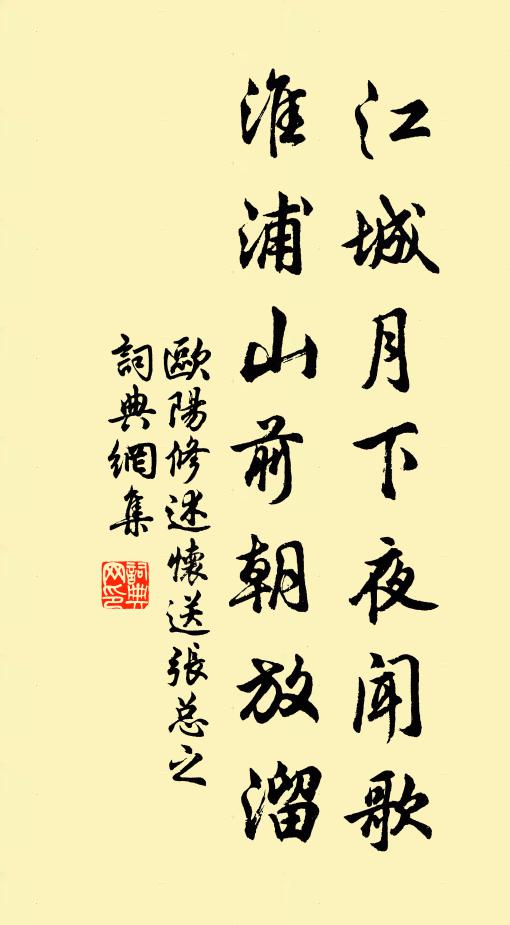 江城月下夜聞歌
淮浦山前朝放溜
歐陽修述懷送張總之
詞典網集
詞典網印